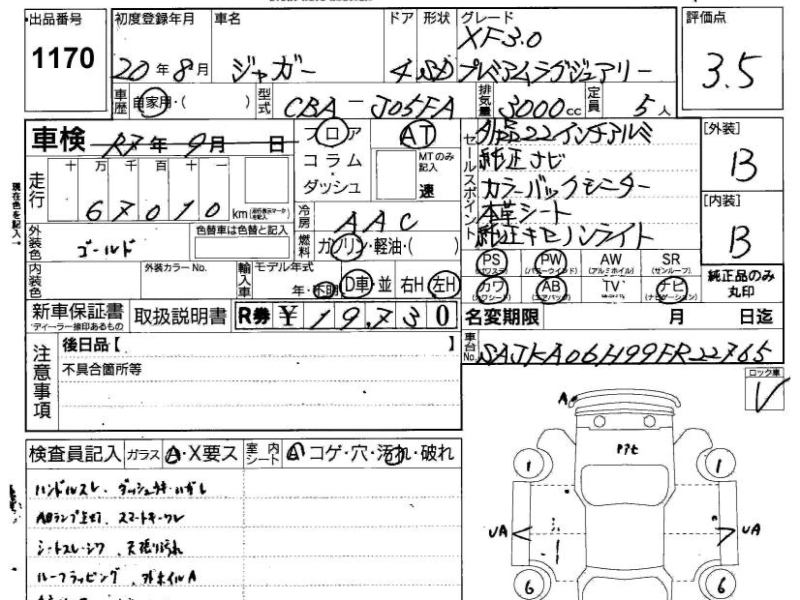 出品番号 1170
初度登録年月 20年8月
車名 ジャガー
ドア 4
形状 SD
グレード XF3.0 プレミアムラグジュアリー
評価点 3.5
車歴 自家用・( )
型式 CBA-J05FA
排気量 3000cc
定員 5人
車検 R7年9月 日
フロア
コラム・
ダッシュ
AT
MTのみ記入
速
走行 十 万 千 百 十 一
67010 km
冷房 AAC
燃料 ガソリン・軽油・( )
現在色を記入
外装色 ゴールド
色替車は色替と記入
内装色
外装カラーNo.
輸入車
モデル年式 年・不明
D車・並 右H・左H
セールスポイント
外品22インチアルミ
純正ナビ
カラーバックモニター
本革シート
純正キセノンライト
[外装] B
[内装] B
PS (パワステ) PW (パワーウインド) AW (アルミホイル) SR (サンルーフ)
カワ (カワシート) AB (エアバック) TV ナビ (ナビゲーション)
純正品のみ丸印
新車保証書
*ディーラー捺印あるもの
取扱説明書
R券 ¥19,730
名変期限 月 日迄
車台No. SAJKA06H99FR22765
注意事項
後日品【 】
不具合箇所等
ロック車 レ
検査員記入 ガラス A・X要ス
室内シート A コゲ・穴・汚れ・破れ
ハンドルスレ、ダッシュウキ・ハガレ
ABランプ点灯、スマートキーワレ
シートスレ・シワ、天張り汚れ
ルーフラッピング、外ホイルA
A
1 1
UA UA
6 6